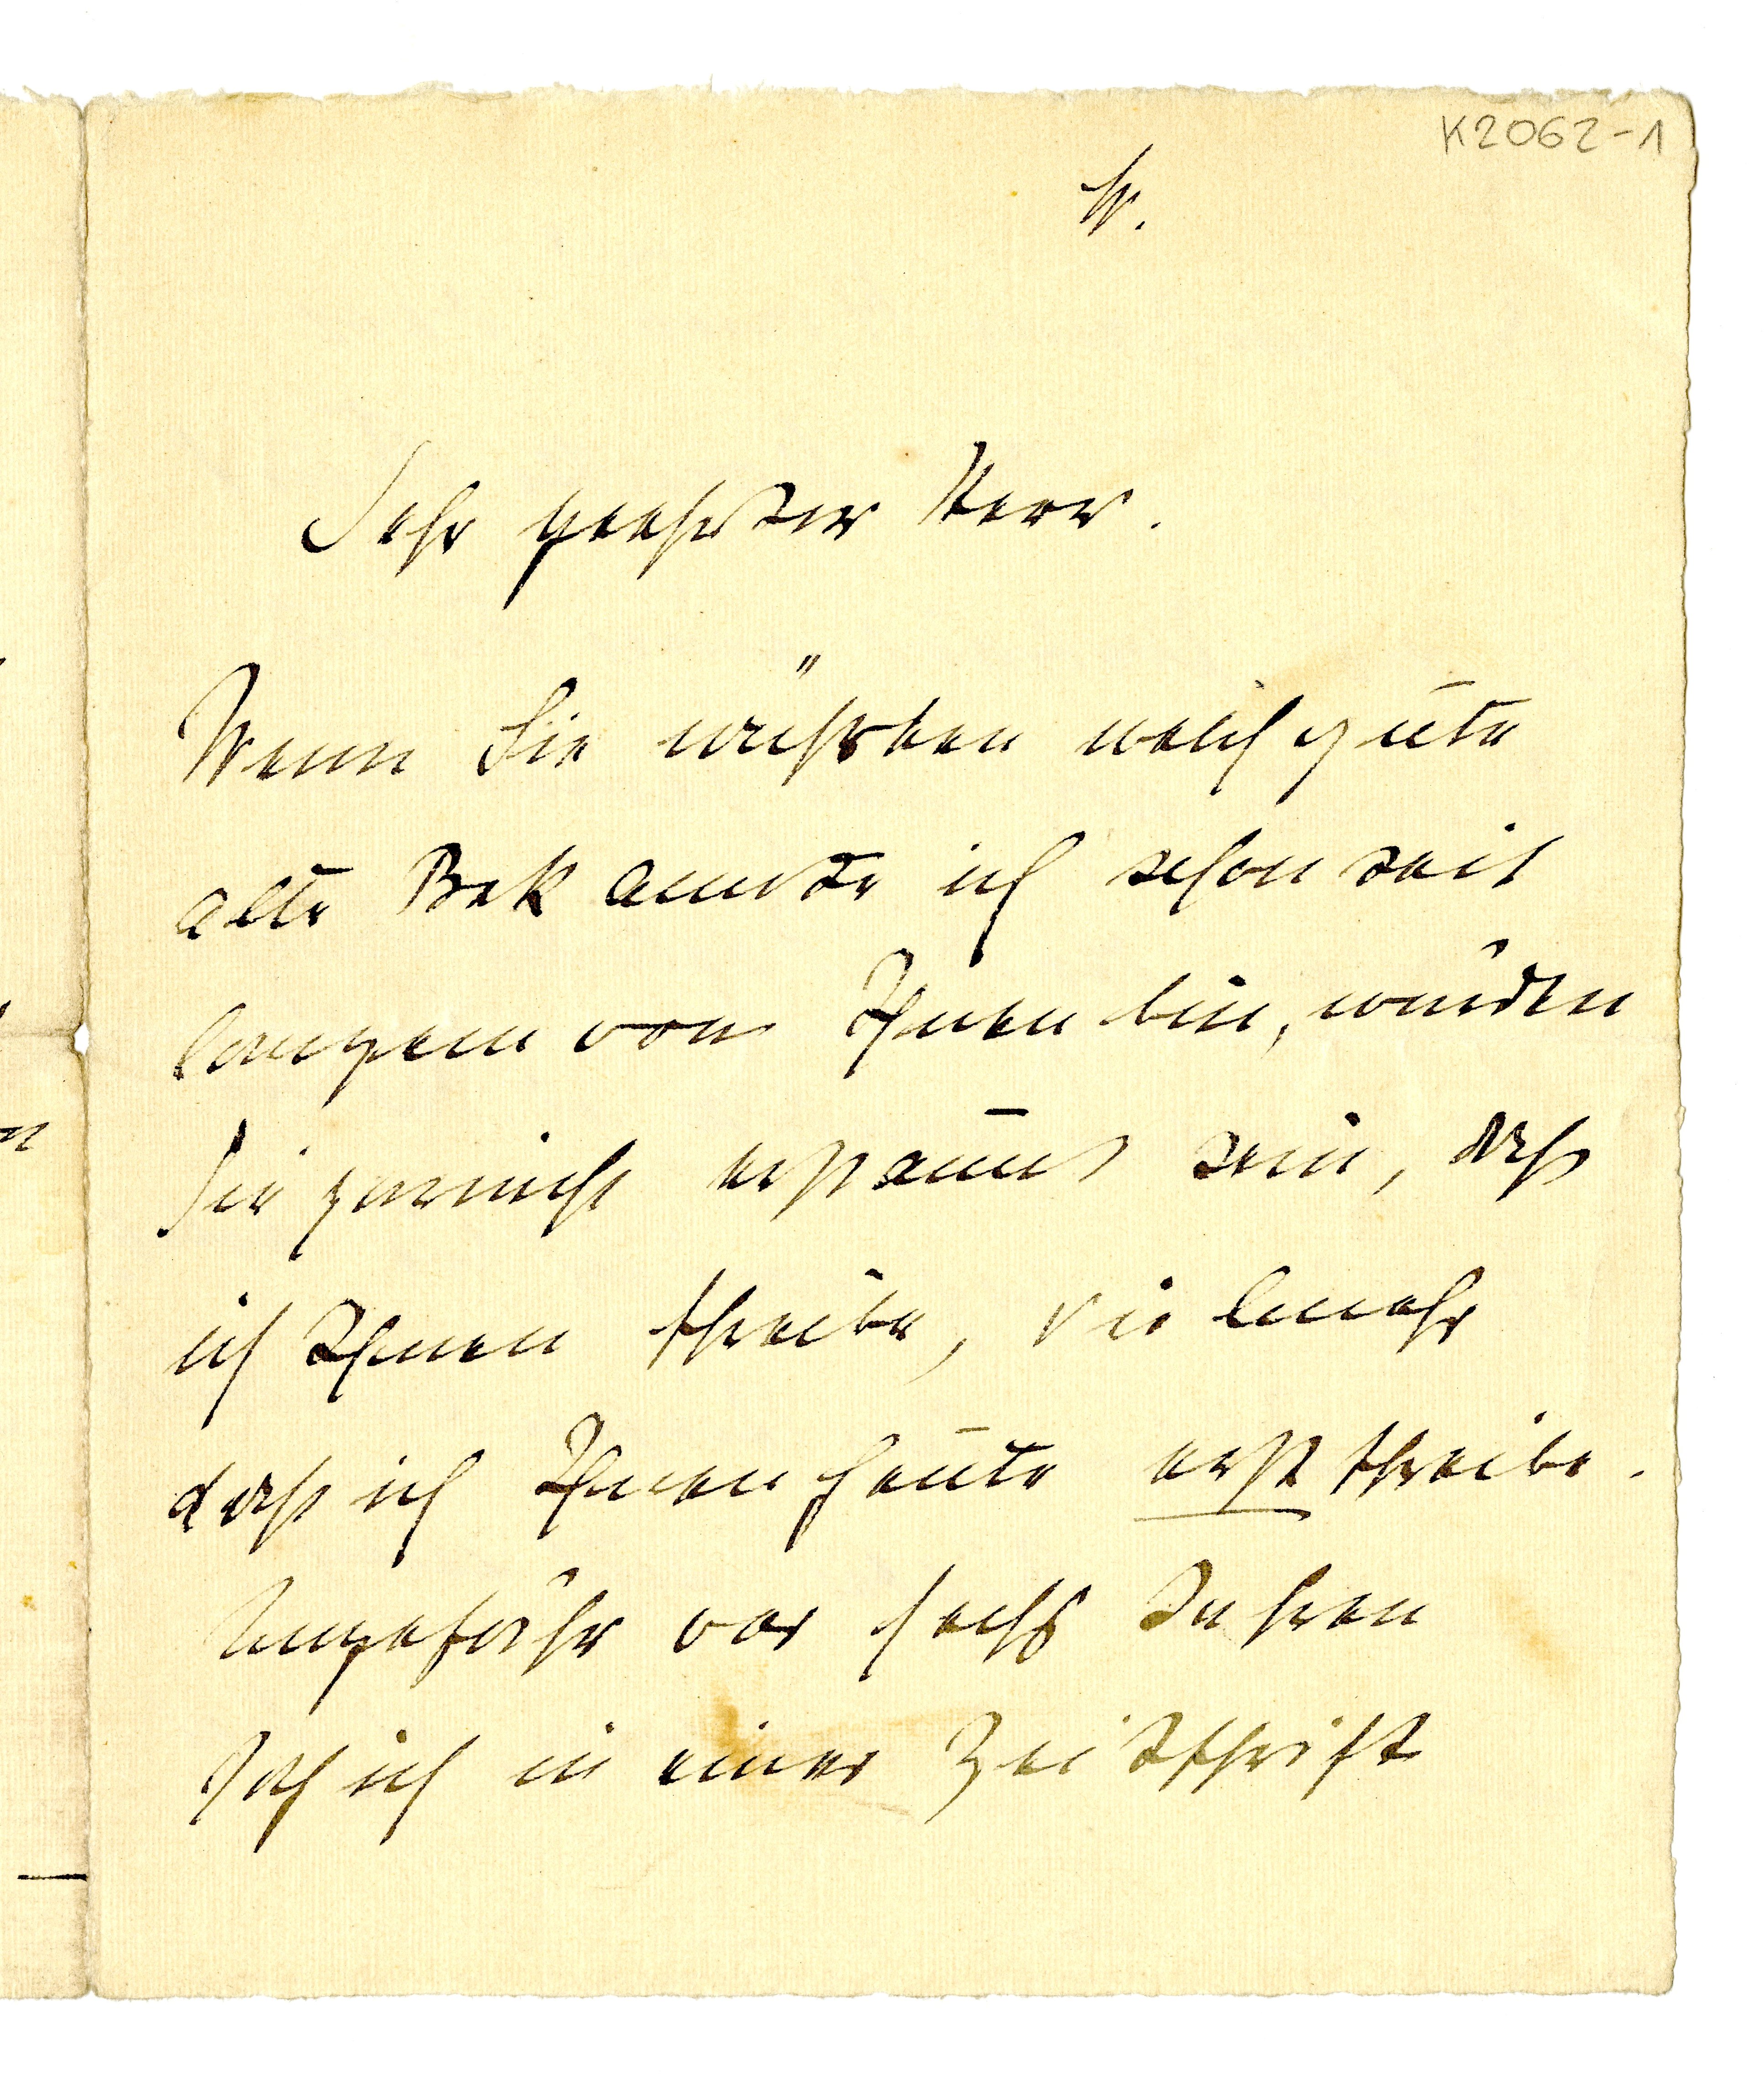 K2062-1
Sehr geehrter Herr.
Wenn Sie wüßten welch gute
alte Bekannte ich schon seit
langem von Ihnen bin, würden
Sie garnicht erstaunt sein, daß
ich Ihnen schreibe, vielmehr
daß ich Ihnen heute erst schreibe.
Ungefähr vor sechs Jahren
sah ich in einer Zeitschrift